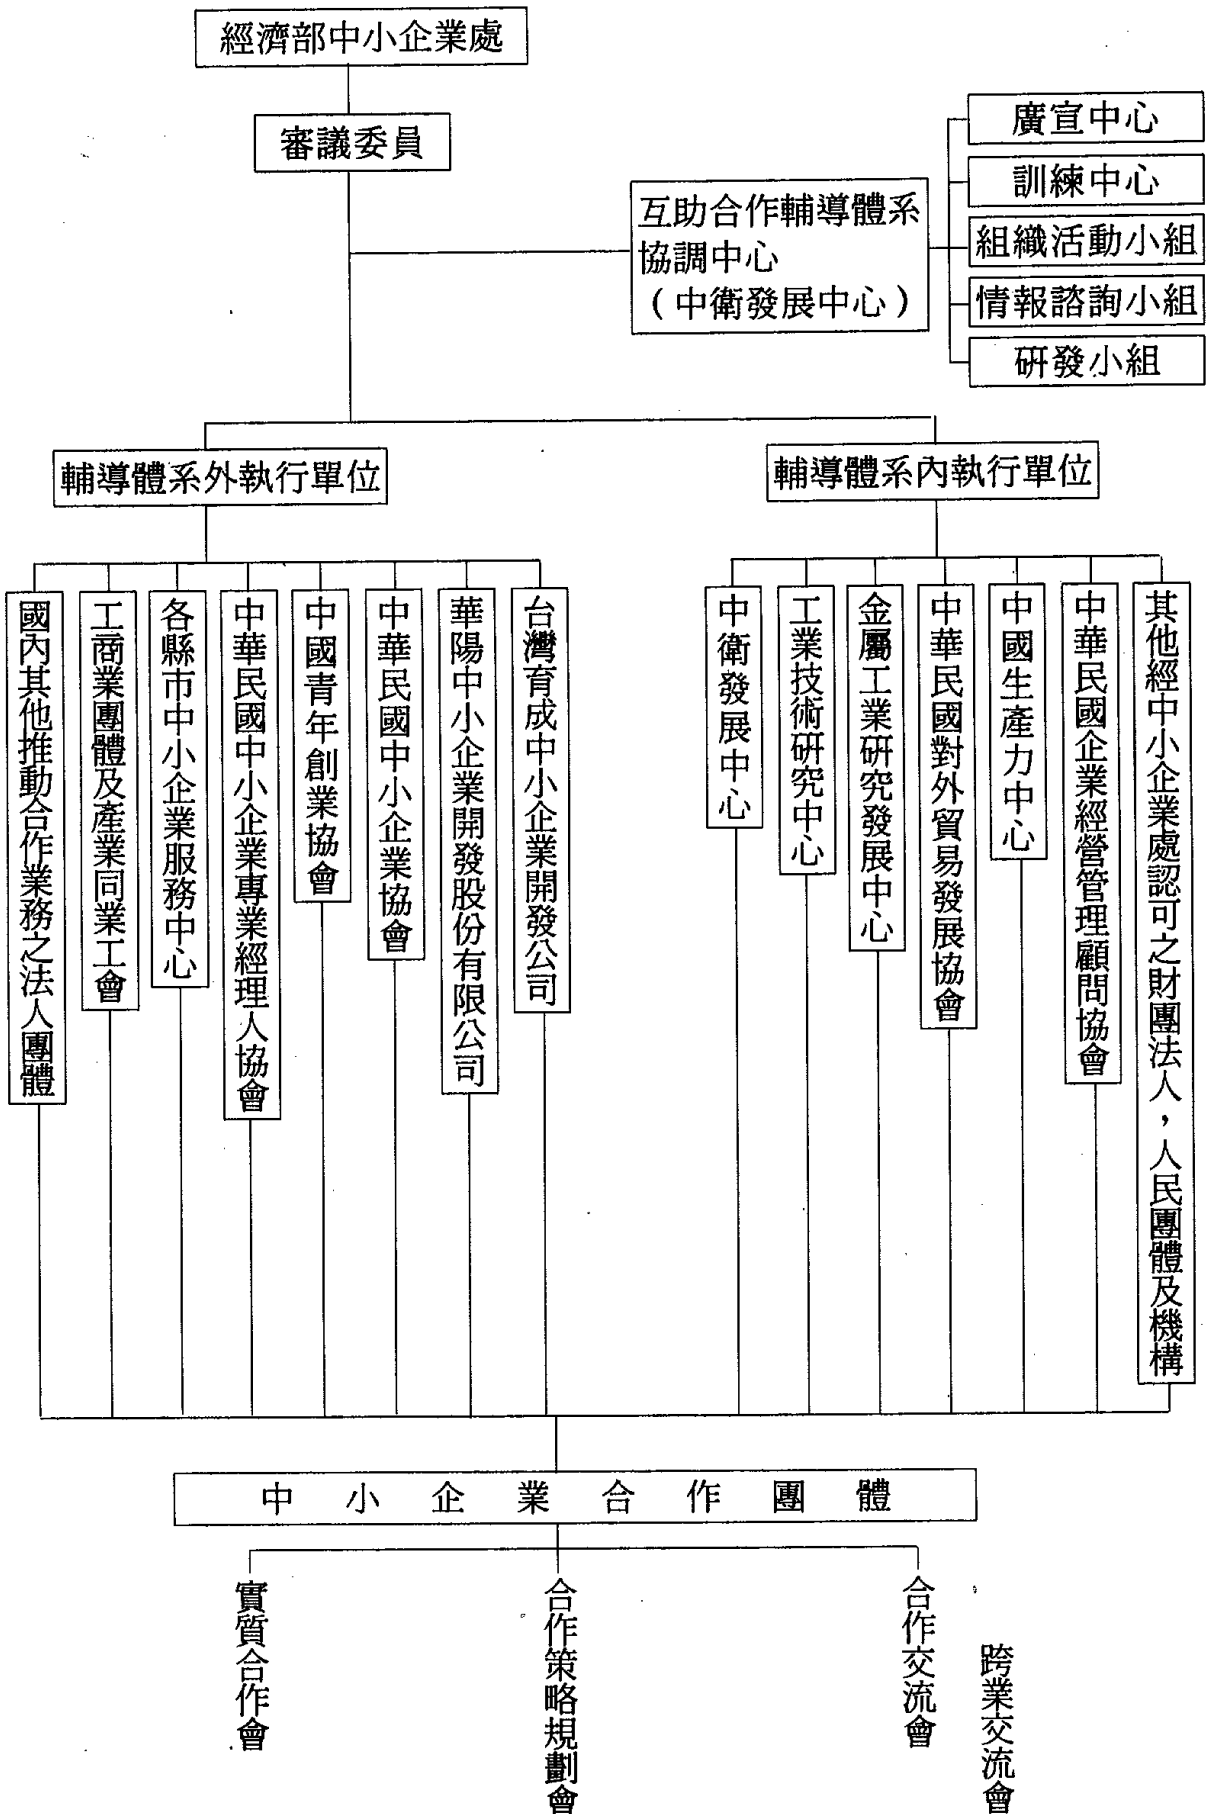 經濟部中小企業處
審議委員
互助合作輔導體系
協調中心
（中衛發展中心）
廣宣中心
訓練中心
組織活動小組
情報諮詢小組
研發小組
輔導體系外執行單位
輔導體系內執行單位
國內其他推動合作業務之法人團體
工商業團體及產業同業工會
各縣市中小企業服務中心
中華民國中小企業專業經理人協會
中國青年創業協會
中華民國中小企業協會
華陽中小企業開發股份有限公司
台灣育成中小企業開發公司
中衛發展中心
工業技術研究中心
金屬工業研究發展中心
中華民國對外貿易發展協會
中國生產力中心
中華民國企業經營管理顧問協會
其他經中小企業處認可之財團法人，人民團體及機構
中小企業合作團體
實質合作會
合作策略規劃會
合作交流會
跨業交流會